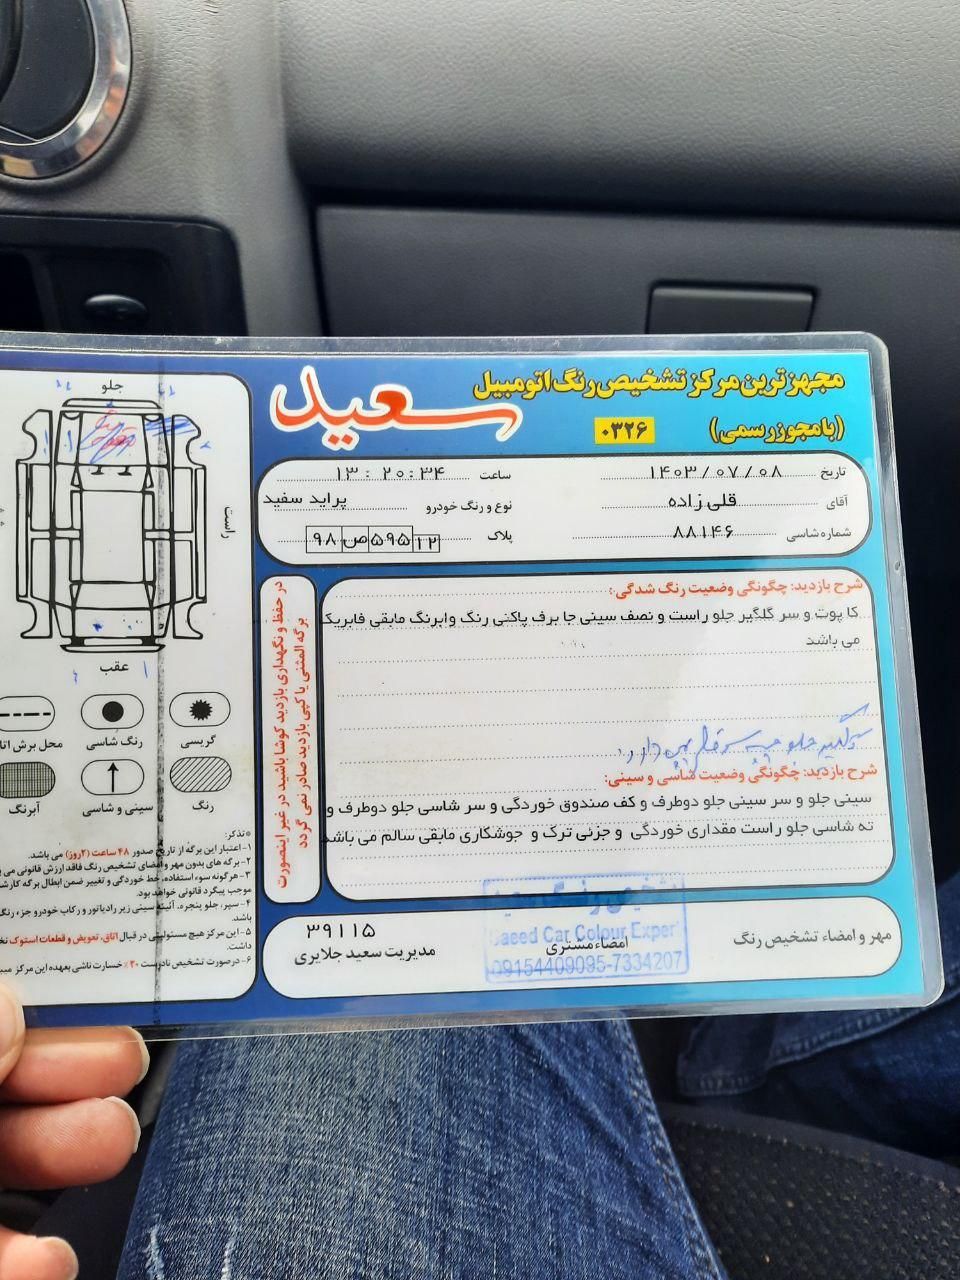 مجهزترین مرکز تشخیص رنگ اتومبیل
سعید
(بامجوز رسمی)
۰۳۲۶
تاریخ ۱۴۰۳/۰۷/۰۸
ساعت ۱۳:۲۰:۳۴
آقای قلی زاده
نوع و رنگ خودرو پراید سفید
شماره شاسی ۸۸۱۴۶
پلاک ۹۸ ص ۵۹۵ ۱۲
شرح بازدید: چگونگی وضعیت رنگ شدگی:
کا پوت و سر گلگیر جلو راست و نصف سینی جا برف پاکنی رنگ وابرنگ مابقی فابریک
می باشد
گلگیر جلو
شرح بازدید: چگونگی وضعیت شاسی و سینی:
سینی جلو و سر سینی جلو دوطرف و کف صندوق خوردگی و سر شاسی جلو دوطرف و
ته شاسی جلو راست مقداری خوردگی و جزئی ترک و جوشکاری مابقی سالم می باشد
در حفظ و نگهداری بازدید کوشا باشید در غیر اینصورت
برگه المثنی یا کپی بازدید صادر نمی گردد
مهر و امضاء تشخیص رنگ
امضاء مشتری
۳۹۱۱۵
مدیریت سعید جلایری
تشخیص رنگ سعید
Saeed Car Colour Exper
09154409095-7334207
جلو
راست
عقب
گریسی
رنگ شاسی
محل برش اتا
رنگ
سینی و شاسی
آبرنگ
*تذکر:
۱- اعتبار این برگه از تاریخ صدور ۴۸ ساعت (۲روز) می باشد.
۲- برگه های بدون مهر و امضای تشخیص رنگ فاقد ارزش قانونی می
۳- هرگونه سوء استفاده، خط خوردگی و تغییر ضمن ابطال برگه
موجب پیگرد قانونی خواهد بود.
۴- سپر، جلو پنجره، آئینه سینی زیر رادیاتور و رکاب خودرو جزء رنگ
باشد.
۵- این مرکز هیچ مسئولیتی در قبال اتاق، تعویض و قطعات استوک
داشت.
۶- درصورت تشخیص نادرست ۲۰٪ خسارت ناشی بعهده این مرکز